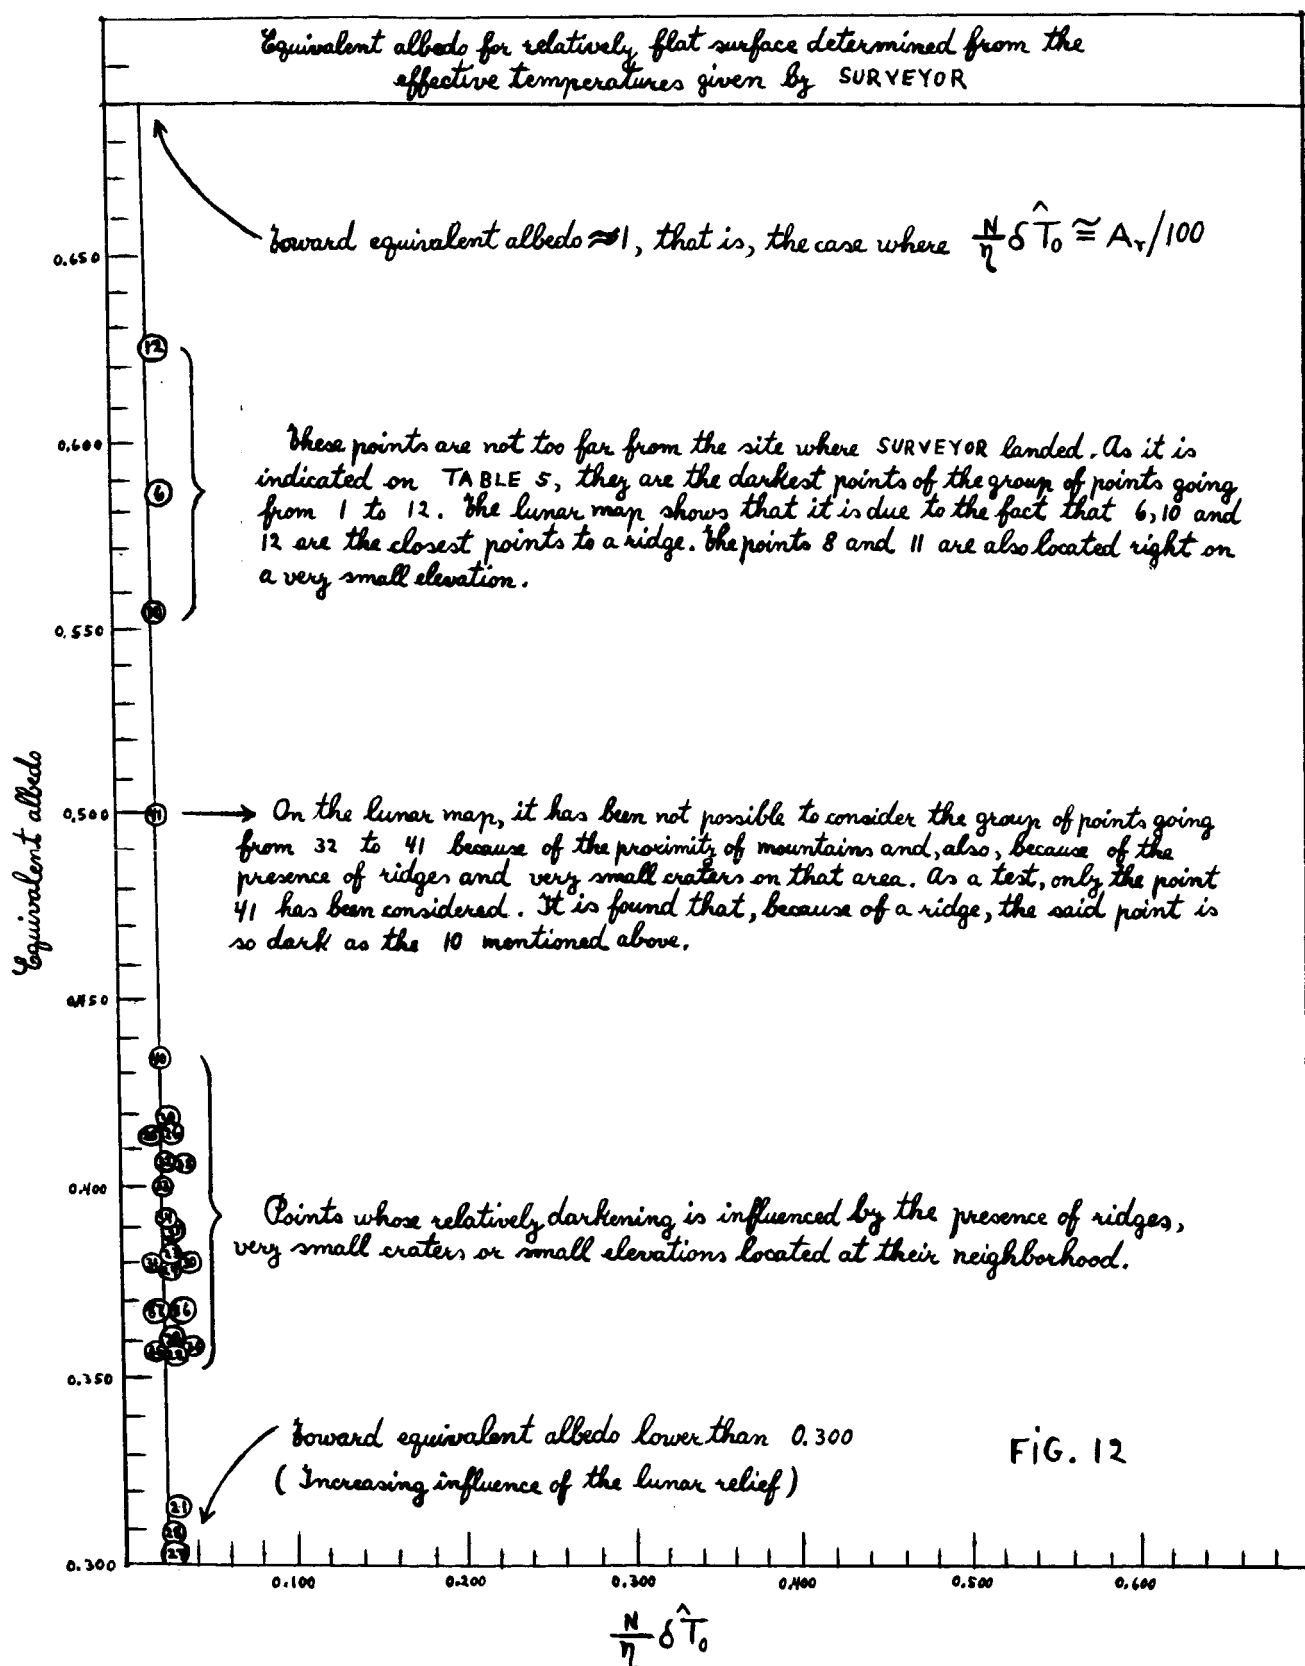 Equivalent albedo for relatively flat surface determined from the
effective temperatures given by SURVEYOR
Toward equivalent albedo ≈ 1, that is, the case where N/η δT̂₀ ≅ Aᵣ/100
0.650
12
These points are not too far from the site where SURVEYOR landed. As it is
0.600
indicated on TABLE 5, they are the darkest points of the group of points going
6
from 1 to 12. The lunar map shows that it is due to the fact that 6, 10 and
12 are the closest points to a ridge. The points 8 and 11 are also located right on
a very small elevation.
10
0.550
Equivalent albedo
0.500
41
On the lunar map, it has been not possible to consider the group of points going
from 32 to 41 because of the proximity of mountains and, also, because of the
presence of ridges and very small craters on that area. As a test, only the point
41 has been considered. It is found that, because of a ridge, the said point is
so dark as the 10 mentioned above.
0.450
40
0.400
Points whose relatively darkening is influenced by the presence of ridges,
very small craters or small elevations located at their neighborhood.
0.350
Toward equivalent albedo lower than 0.300
(Increasing influence of the lunar relief)
FIG. 12
21
0.300
0.100 0.200 0.300 0.400 0.500 0.600
N/η δT̂₀